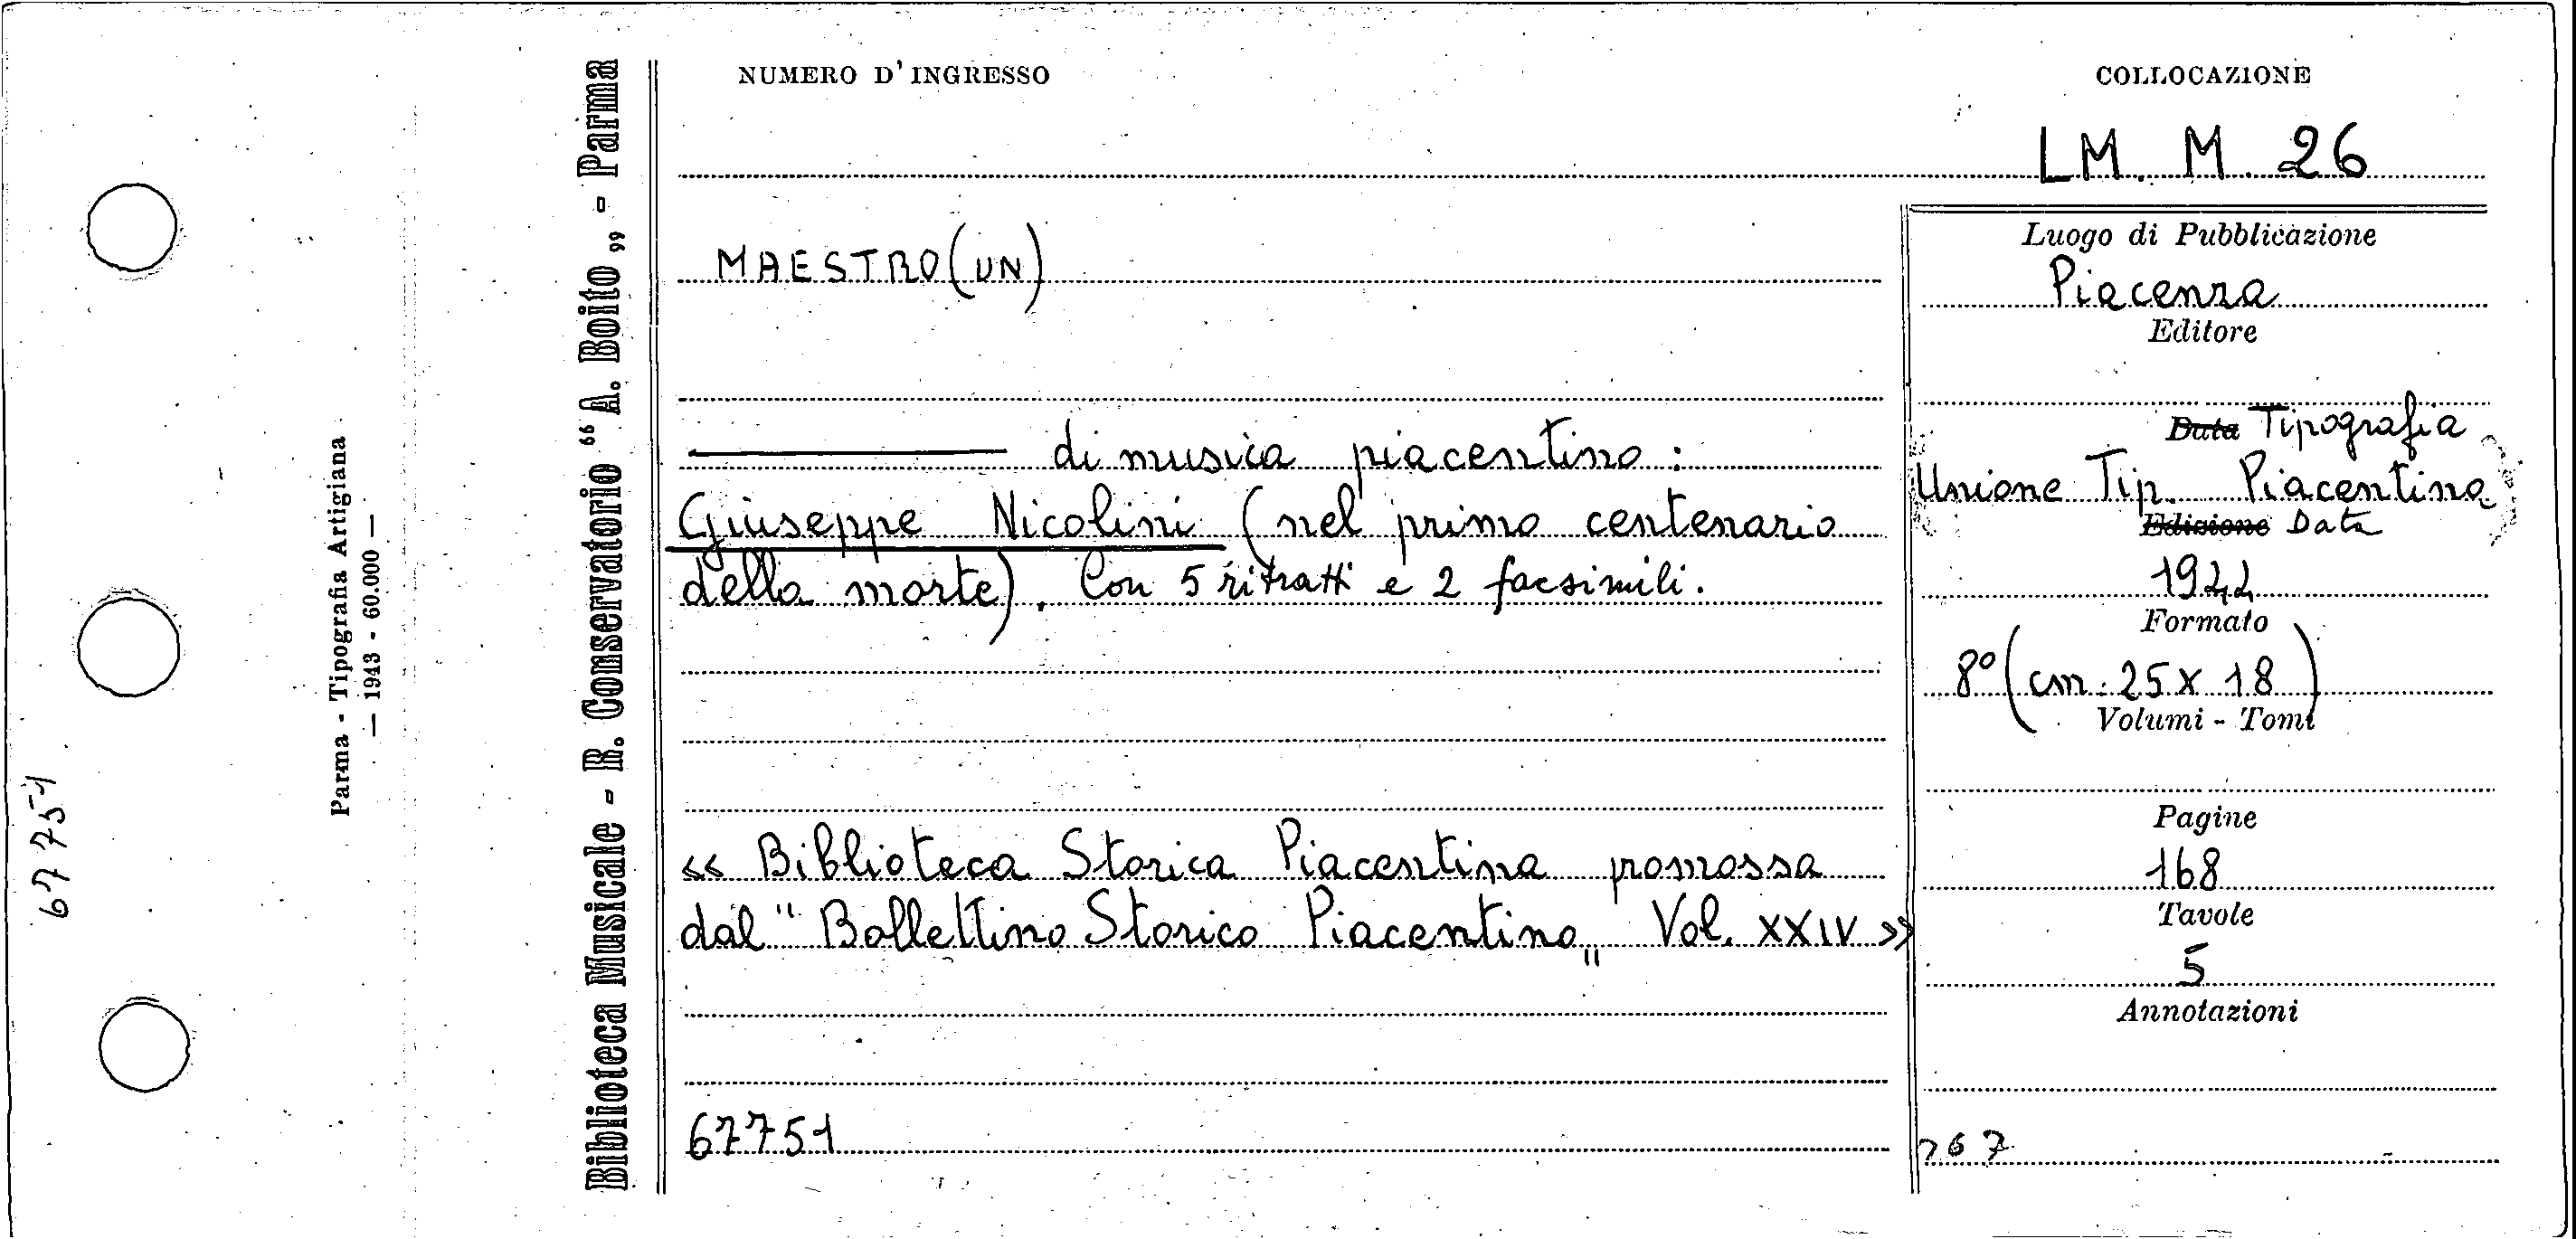 NUMERO D'INGRESSO
COLLOCAZIONE
LM. M. 26
MAESTRO (UN)
di musica piacentino:
Giuseppe Nicolini (nel primo centenario
della morte). Con 5 ritratti e 2 facsimili.
« Biblioteca Storica Piacentina promossa
dal " Bollettino Storico Piacentino „ Vol. XXIV »
67751
Luogo di Pubblicazione
Piacenza
Editore
Data Tipografia
Unione Tip. Piacentina
Edizione Data
1922
Formato
8° (cm. 25 x 18)
Volumi - Tomi
Pagine
168
Tavole
5
Annotazioni
767
Biblioteca Musicale - R. Conservatorio “A. Boito „ - Parma
Parma - Tipografia Artigiana
— 1943 - 60.000 —
67751